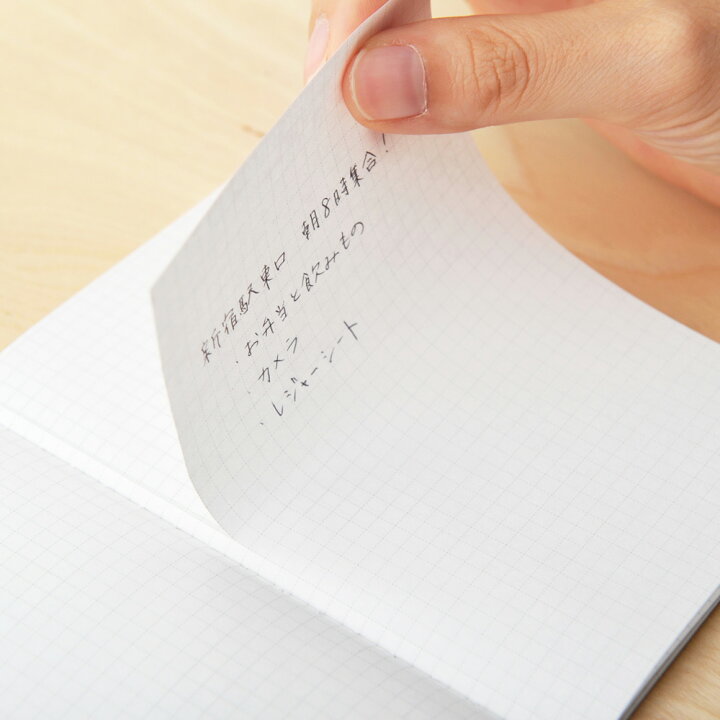 新宿駅東口 朝8時集合!
・お弁当と飲みもの
・カメラ
・レジャーシート